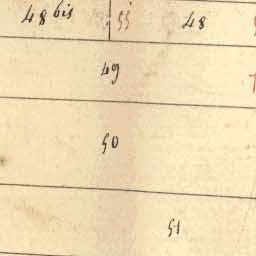 48 bis 55 48
49
50
51